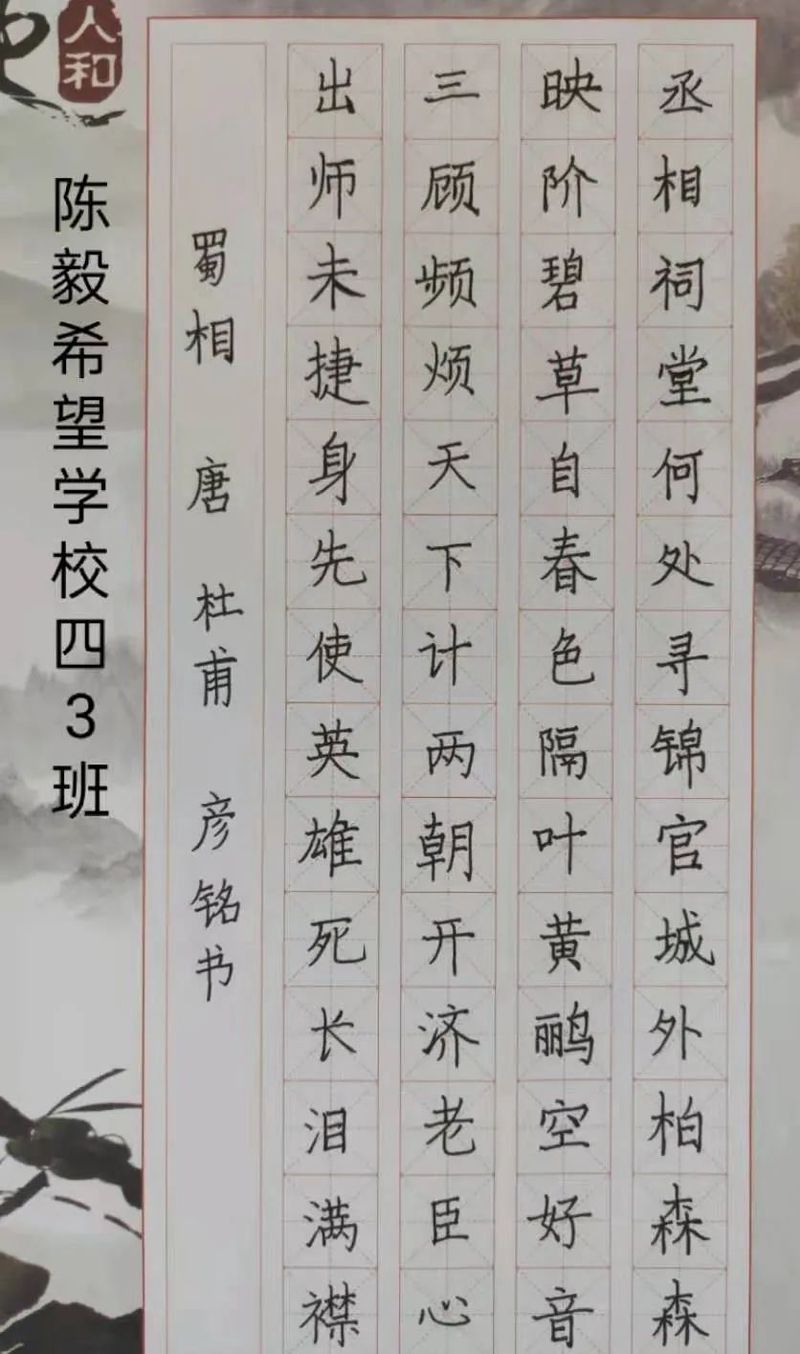 丞相祠堂何处寻锦官城外柏森森
映阶碧草自春色隔叶黄鹂空好音
三顾频烦天下计两朝开济老臣心
出师未捷身先使英雄死长泪满襟
蜀相 唐 杜甫 彦铭书
陈毅希望学校四3班
人和